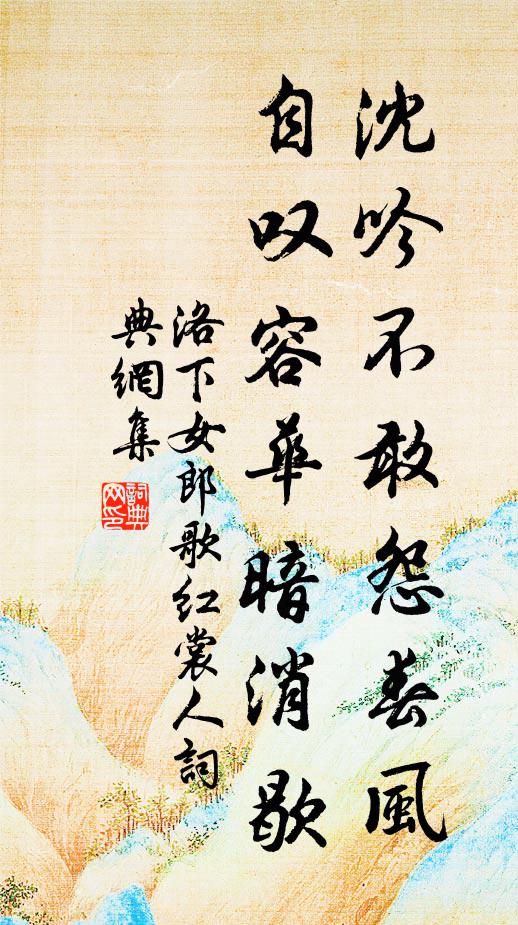 沈吟不敢怨春風
自叹容華暗消歇
洛下女郎歌紅裳人詞
典網集
詞典
网印